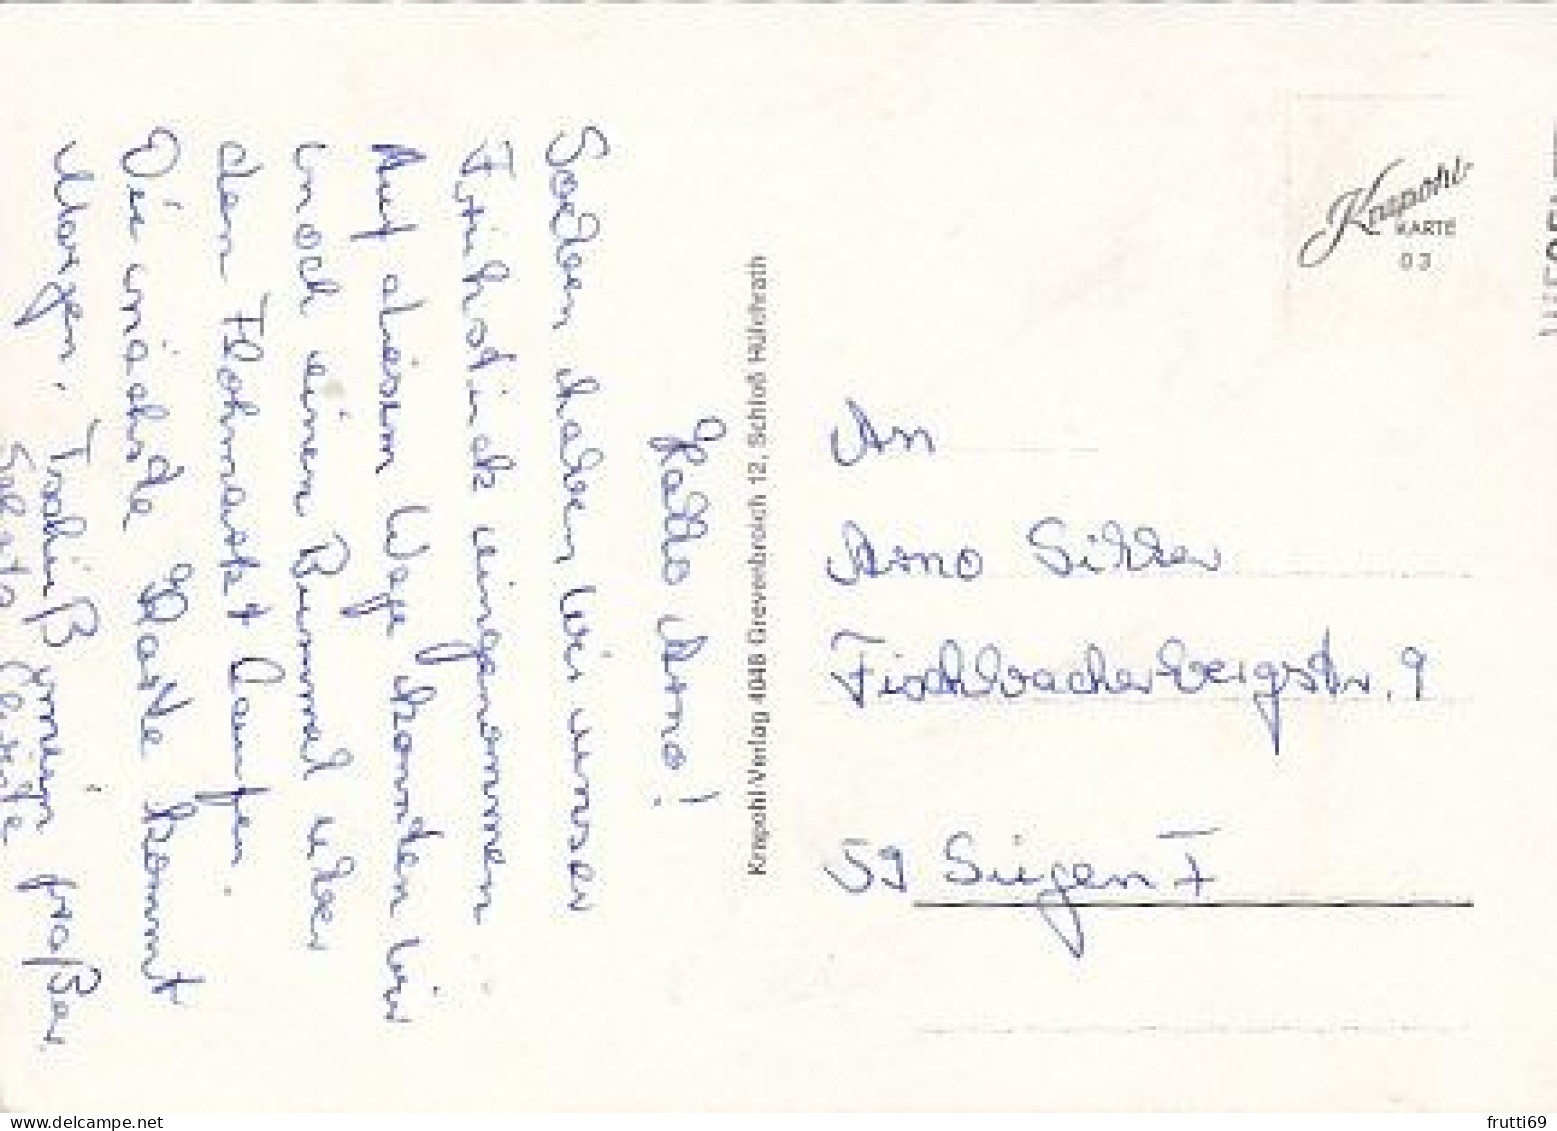 Hallo Arno!
Soeben haben wir unser
Frühstück eingenommen.
Auf diesem Wege konnten wir
noch einen Bummel über
den Flohmarkt laufen.
Die nächste Karte kommt
Morgen. Tschüß mein großer.
Krapohl-Verlag 4048 Grevenbroich 12, Schloß Hülchrath
Krapohl
KARTE
03
An
Arno Sikker
Fischbacherbergstr. 9
59 Siegen 1
frutti69